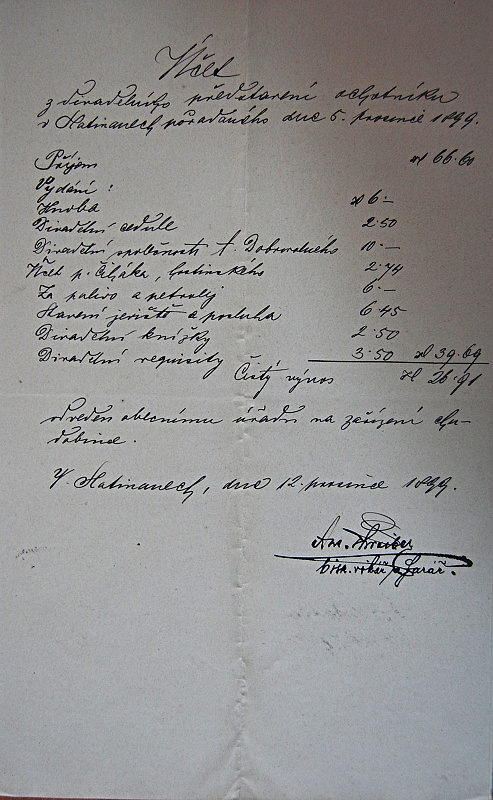 Účet
z divadelního představení ochotníků
v Slatinanech pořádaného dne 5. prosince 1899.
Příjem zl 66.60
Vydání:
Hudba zl 6.–
Divadelní cedule 2.50
Divadelní společnosti t. Dobrovolného 10.–
Účet p. Čiháka, hostinského 2.74
Za palivo a petrolej 6.–
Stavení jeviště a posluha 6.45
Divadelní knížky 2.50
Divadelní requisity 3.50 zl 39.69
Čistý výnos zl 26.91
odveden obecnímu úřadu na zařízení chu-
dobince.
V Slatinanech, dne 12. prosince 1899.
bisk. vikář a farář.